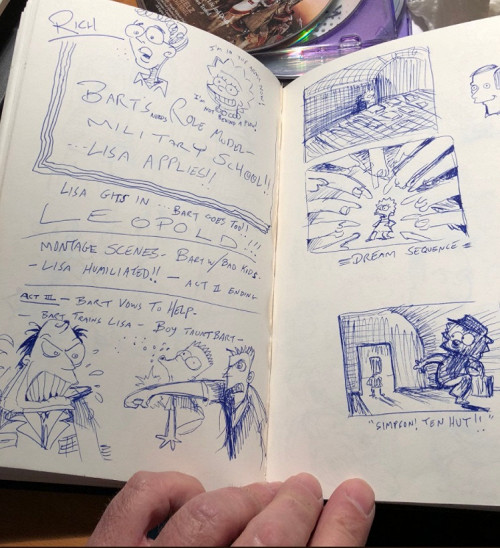 RICH
I'M IN THE ARMY NOW!
I'M NOT BEHIND A PLOW!
BART'S NEEDS ROLE MODEL -
MILITARY SCHOOL!!
...LISA APPLIES!!
LISA GETS IN ... BART GOES TOO!!
LEOPOLD!!!
MONTAGE SCENES - BART W/ BAD KIDS -
- LISA HUMILIATED!! - ACT II ENDING
ACT III - BART VOWS TO HELP -
- BART TRAINS LISA - BOY TAUNT BART -
= DREAM SEQUENCE =
"SIMPSON! TEN HUT!!"